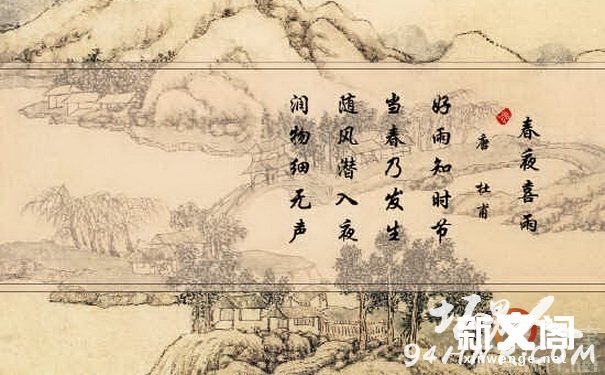 春夜喜雨
唐 杜甫
好雨知时节
当春乃发生
随风潜入夜
润物细无声
新文阁
ixinwenge.net